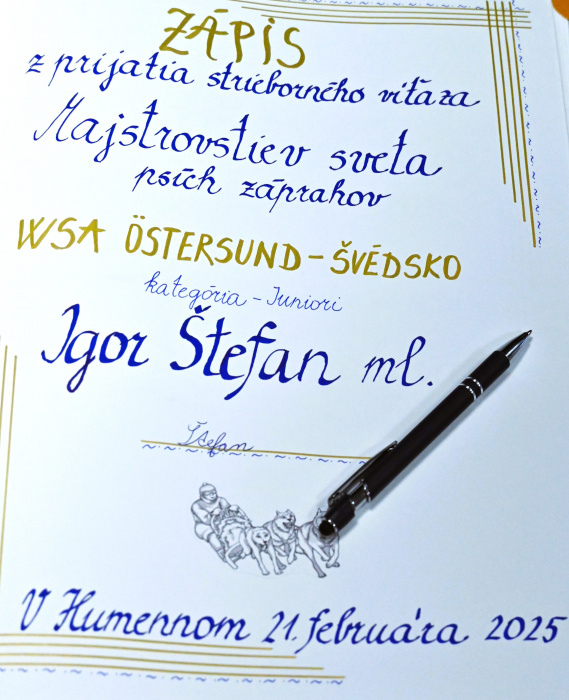 ZÁPIS
z prijatia strieborného víťaza
Majstrovstiev sveta
psích záprahov
WSA ÖSTERSUND - ŠVÉDSKO
kategória - Juniori
Igor Štefan ml.
Štefan
V Humennom 21. februára 2025